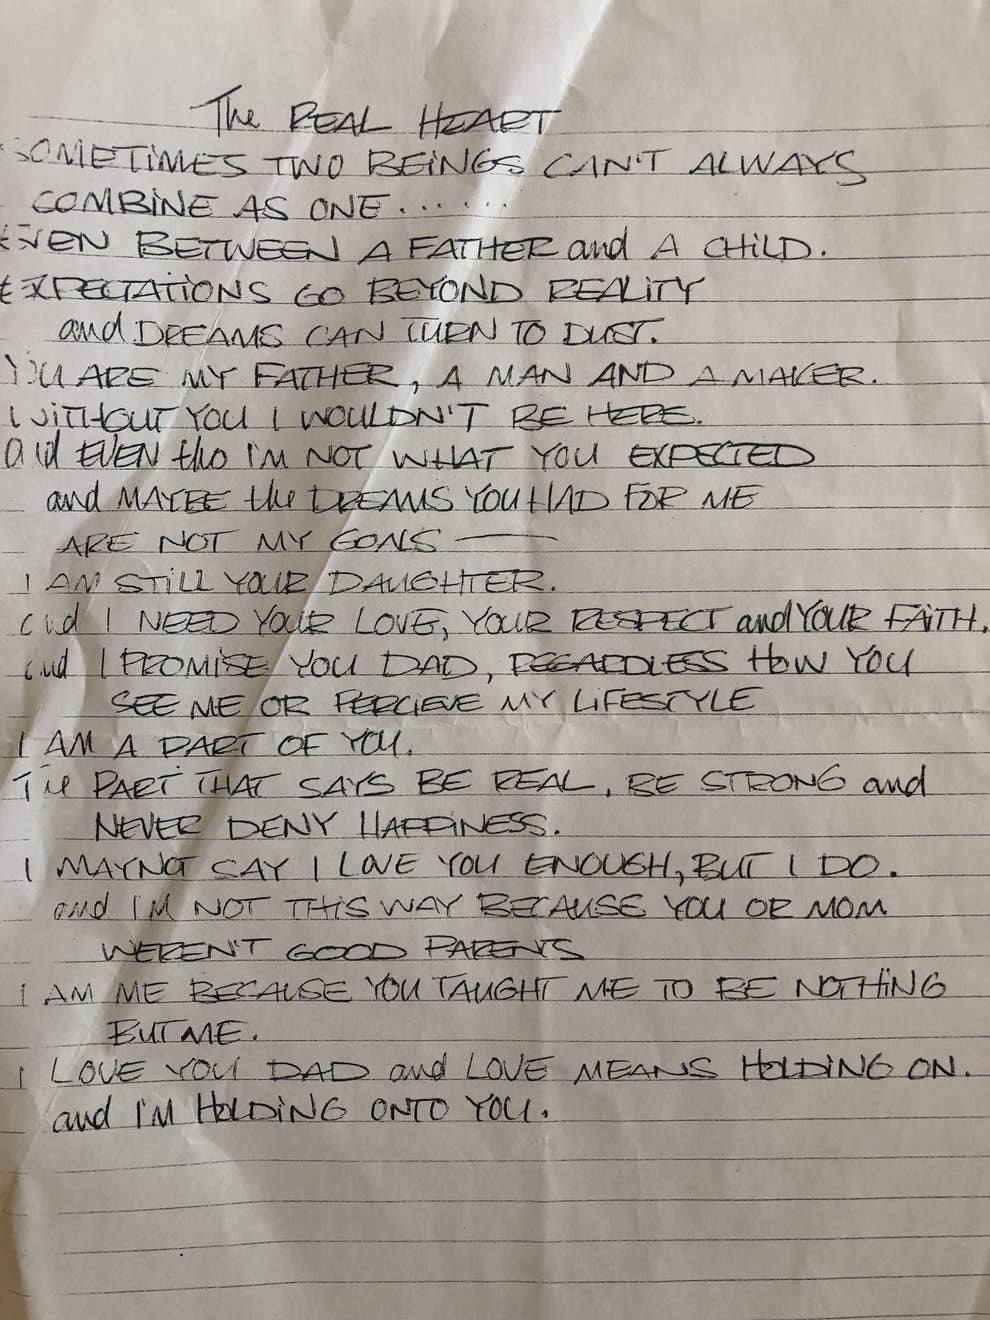 The REAL HEART
SOMETiMES TWO BEiNGS CAN'T ALWAYS
COMBiNE AS ONE.......
EVEN BETWEEN A FATHER and A CHiLD.
EXPECTATiONS GO BEYOND REALiTY
and DREAMS CAN TURN TO DUST.
YOU ARE MY FATHER, A MAN AND A MAKER.
WiTHOUT YOU I WOULDN'T BE HERE.
and EVEN tho I'M NOT WHAT YOU EXPECTED
and MAYBE the DREAMS YOU HAD FOR ME
ARE NOT MY GOALS —
I AM STiLL YOUR DAUGHTER.
and I NEED YOUR LOVE, YOUR RESPECT and YOUR FAiTH.
and I PROMiSE YOU DAD, REGARDLESS HOW YOU
SEE ME OR PERCIEVE MY LiFESTYLE
I AM A PART OF YOU.
The PART THAT SAYS BE REAL, BE STRONG and
NEVER DENY HAPPiNESS.
I MAYNOT SAY I LOVE YOU ENOUGH, BUT I DO.
and I'M NOT THiS WAY BECAUSE YOU OR MOM
WEREN'T GOOD PARENTS
I AM ME BECAUSE YOU TAUGHT ME TO BE NOTHiNG
BUT ME.
I LOVE YOU DAD and LOVE MEANS HOLDiNG ON.
and I'M HOLDiNG ONTO YOU.